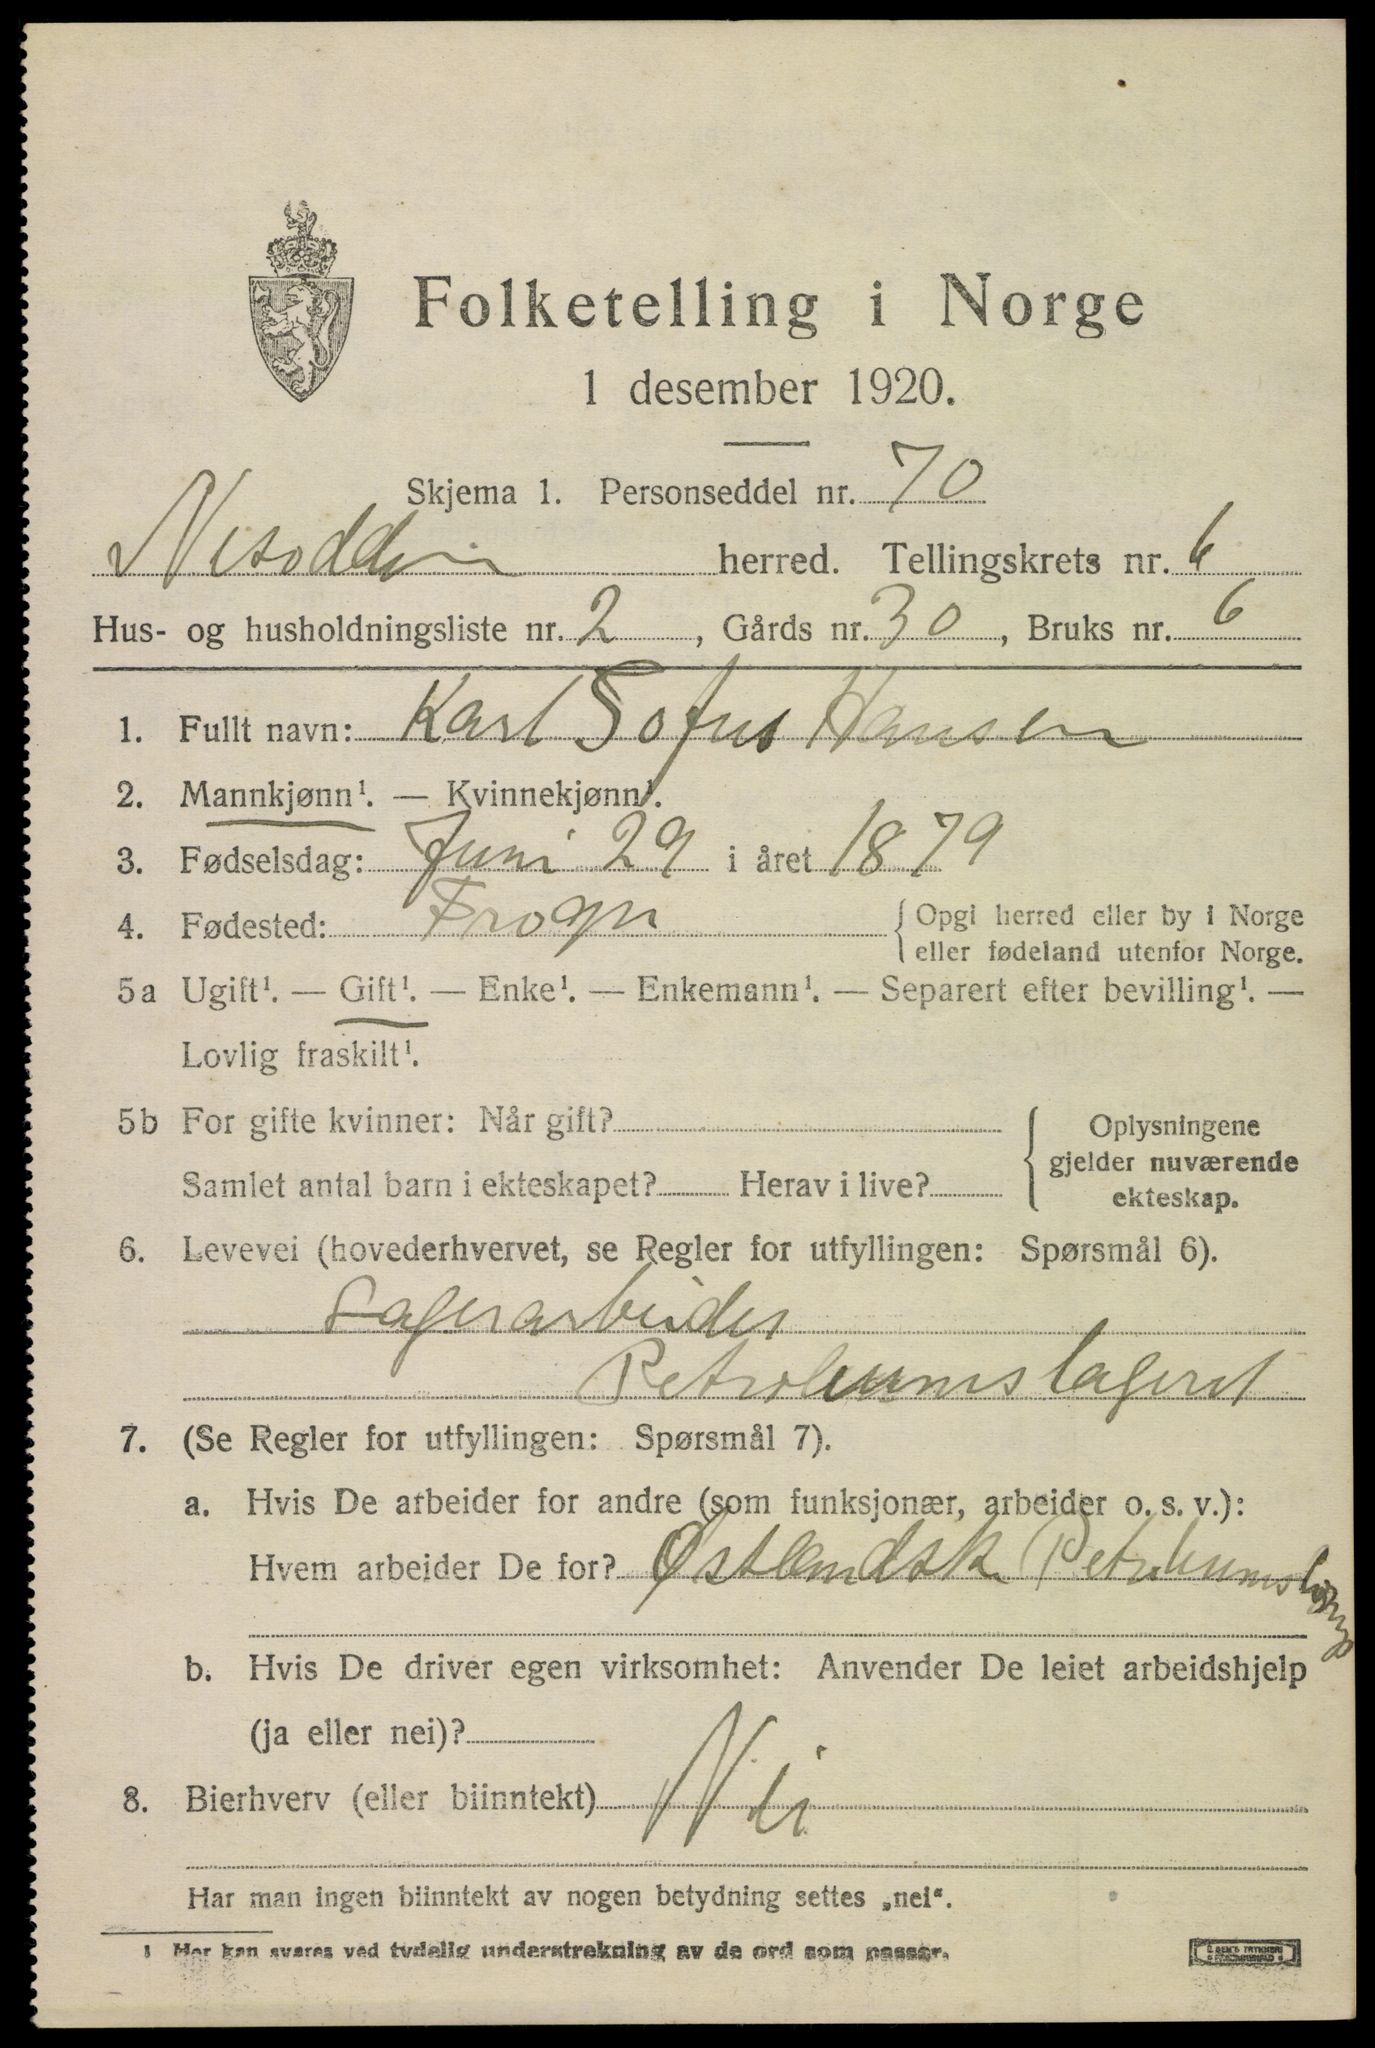 Folketelling i Norge
1 desember 1920.
Skjema 1. Personseddel nr. 70
Nesodden herred. Tellingskrets nr. 6
Hus- og husholdningsliste nr. 2, Gårds nr. 30, Bruks nr. 6
1. Fullt navn: Karl Sofus Hansen
2. Mannkjønn¹. — Kvinnekjønn¹.
3. Fødselsdag: Juni 29 i året 1879
4. Fødested: Frogn { Opgi herred eller by i Norge
eller fødeland utenfor Norge.
5a Ugift¹. — Gift¹. — Enke¹. — Enkemann¹. — Separert efter bevilling¹. —
Lovlig fraskilt¹.
5b For gifte kvinner: Når gift? { Oplysningene
gjelder nuværende
Samlet antal barn i ekteskapet? Herav i live?
ekteskap.
6. Levevei (hovederhvervet, se Regler for utfyllingen: Spørsmål 6).
Lagerarbeider
Petroleumslageret
7. (Se Regler for utfyllingen: Spørsmål 7).
a. Hvis De arbeider for andre (som funksjonær, arbeider o. s. v.):
Hvem arbeider De for? Østlandsk Petroleums
b. Hvis De driver egen virksomhet: Anvender De leiet arbeidshjelp
(ja eller nei)?
8. Bierhverv (eller biinntekt) Nei
Har man ingen biinntekt av nogen betydning settes „nei“.
1 Her kan svares ved tydelig understrekning av de ord som passer.